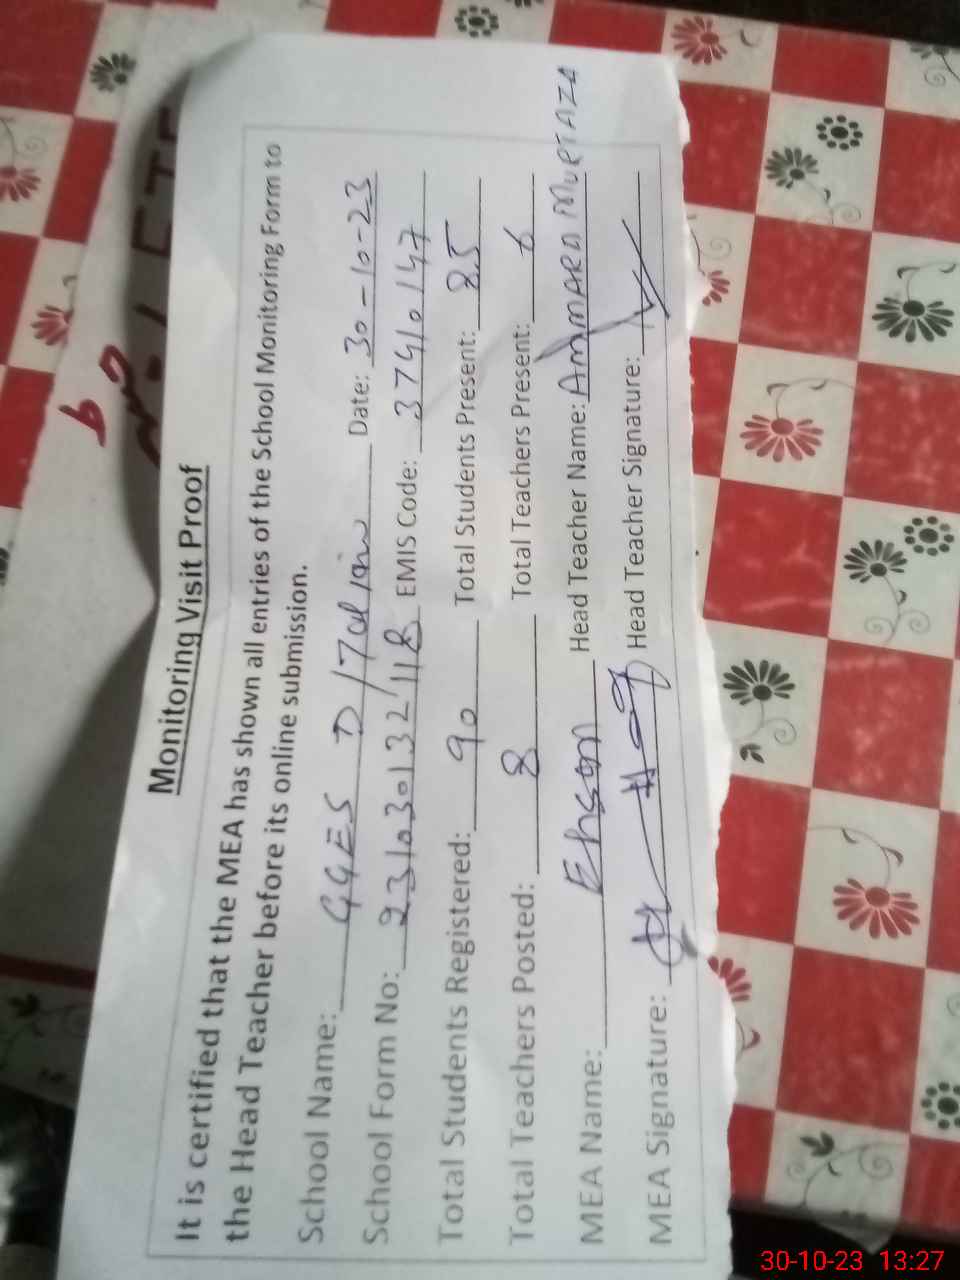 Monitoring Visit Proof
It is certified that the MEA has shown all entries of the School Monitoring Form to
the Head Teacher before its online submission.
School Name: GGES Date: 30-10-23
School Form No: 231030132118 EMIS Code: 37410147
Total Students Registered: 90 Total Students Present: 85
Total Teachers Posted: 8 Total Teachers Present: 6
MEA Name: Ehsan Head Teacher Name: AMMARA MURTAZA
MEA Signature: Head Teacher Signature:
30-10-23 13:27